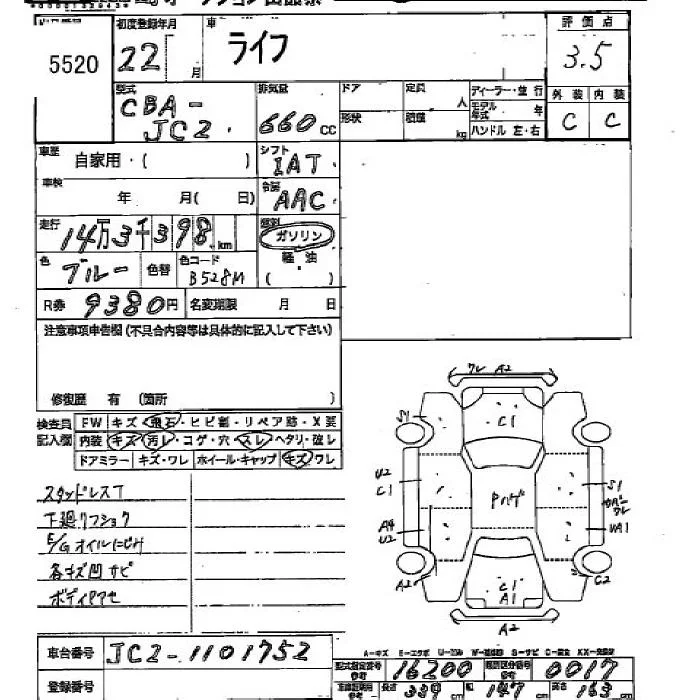 5520
初度登録年月
22 月
車
ライフ
評価点
3.5
外装 内装
C C
型式
CBA-
JC2
排気量
660cc
ドア
定員 人
形状
積載 kg
ディーラー・並行
モデル年式 年
ハンドル 左・右
車歴
自家用・( )
シフト
IAT
車検
年 月( 日)
冷房
AAC
走行
14万3千398km
燃料
ガソリン
軽油
( )
色
ブルー
色替
色コード
B528M
R券 9380円
名変期限 月 日
注意事項申告欄(不具合内容等は具体的に記入して下さい)
修復歴 有 (箇所 )
検査員
記入欄
FW キズ・飛石・ヒビ割・リペア跡・X要
内装 キズ・汚レ・コゲ・穴・スレ・ヘタリ・破レ
ドアミラー キズ・ワレ ホイール・キャップ キズ・ワレ
スタッドレスT
下廻リフショク
E/Gオイルにじみ
各キズ凹サビ
ボディヤケセ
ワレ A2
S1
C1
U2
C1
Pハゲ
S1
ワレ
A4
U2
UA1
A2
C2
C1
A1
A2
車台番号 JC2-1101752
登録番号
型式指定番号 16200
類別区分番号 0017
長さ 339cm
幅 147cm
高さ 163cm